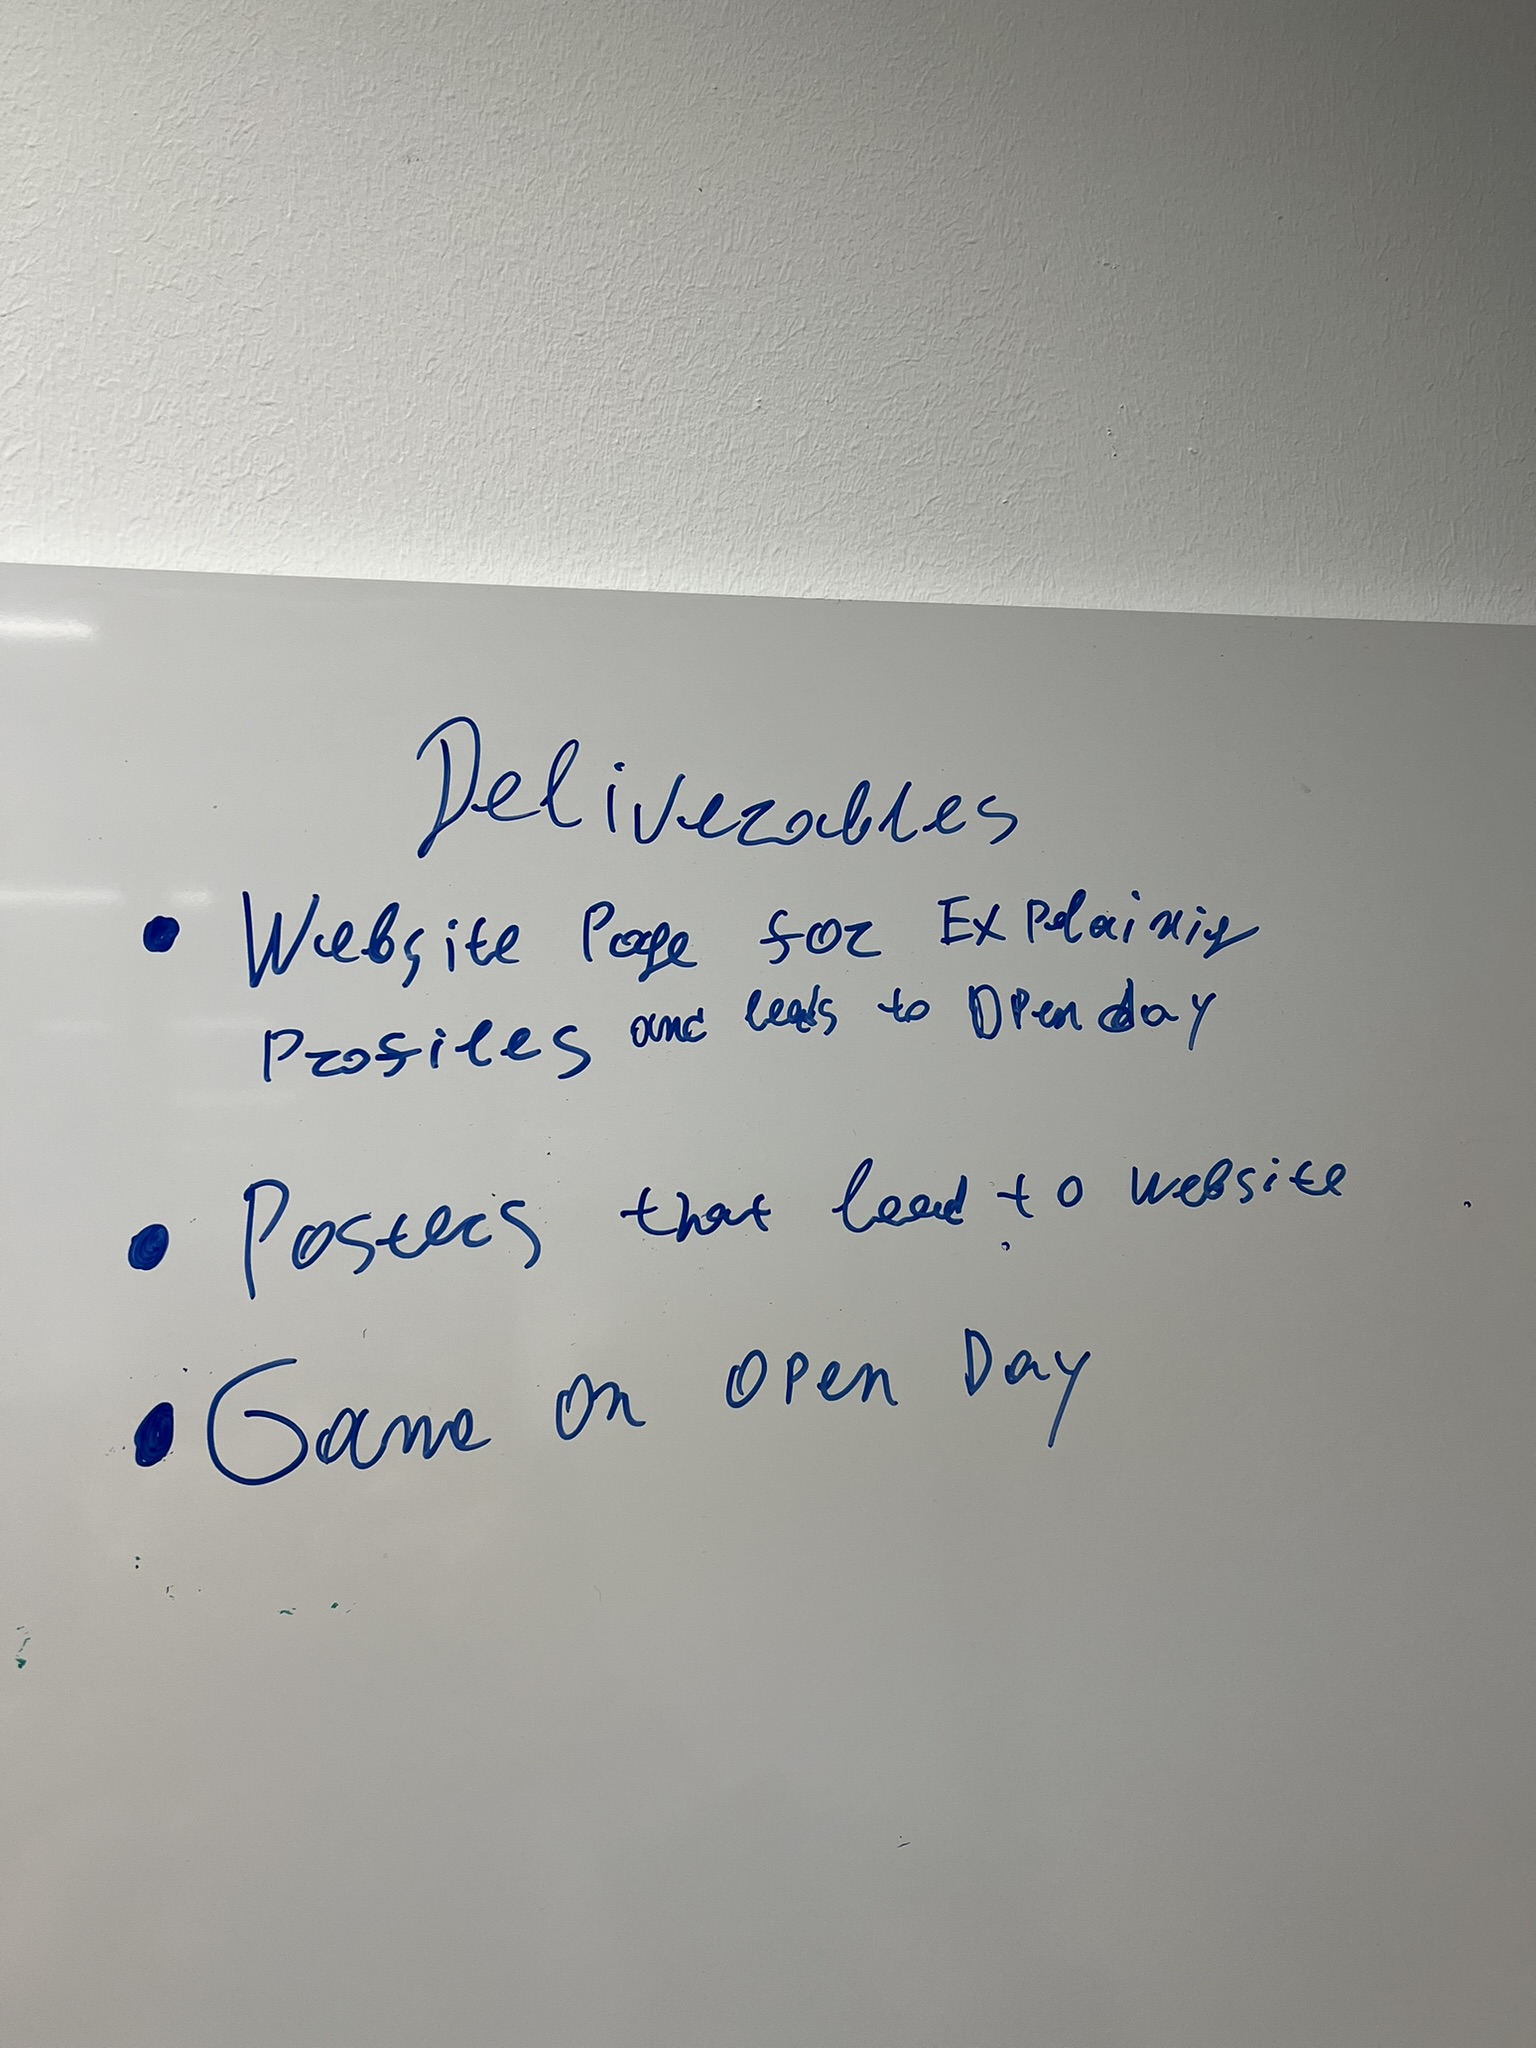 Deliverables
• Website Page for Explaining
Profiles and leads to Open day
• Posters that lead to website
• Game on Open Day